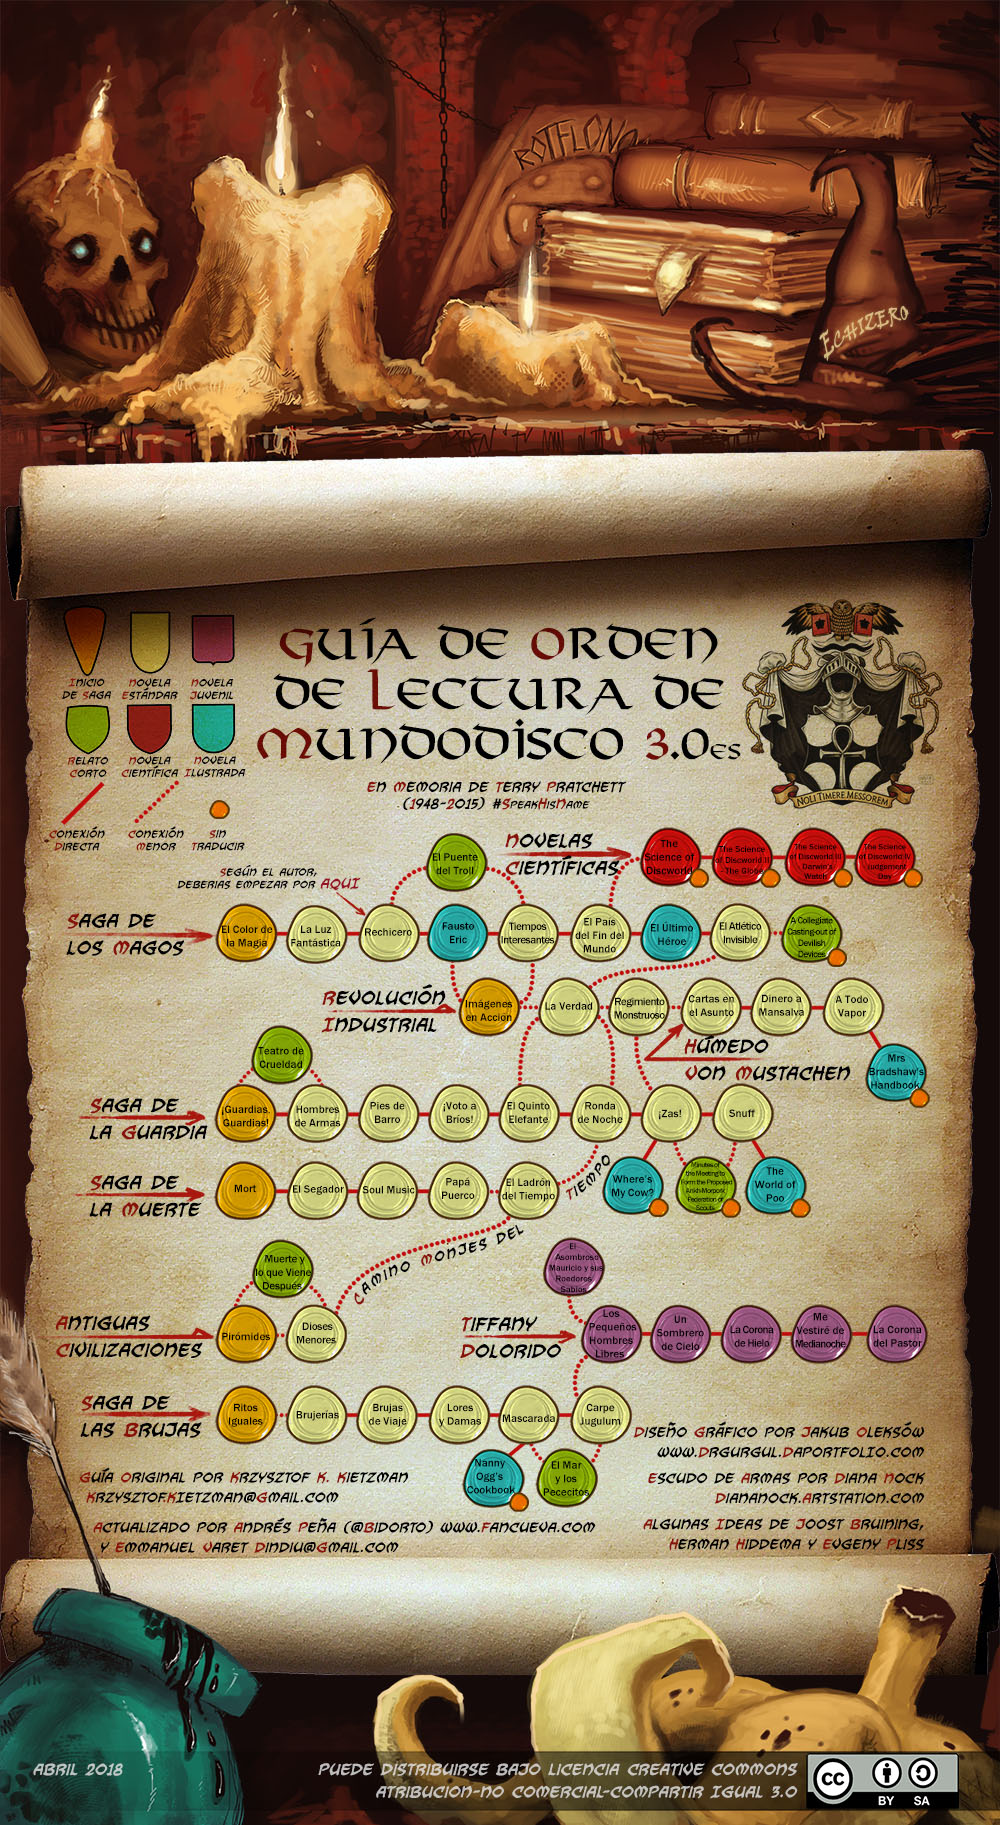 ROTFLONG
ECHIZERO
GUÍA DE ORDEN
DE LECTURA DE
MUNDODISCO 3.0ES
EN MEMORIA DE TERRY PRATCHETT
(1948-2015) #SPEAKHISNAME
INICIO
DE SAGA
NOVELA
ESTÁNDAR
NOVELA
JUVENIL
RELATO
CORTO
NOVELA
CIENTÍFICA
NOVELA
ILUSTRADA
CONEXIÓN
DIRECTA
CONEXIÓN
MENOR
SIN
TRADUCIR
NOLI TIMERE MESSOREM
SEGÚN EL AUTOR,
DEBERIAS EMPEZAR POR AQUI
El Puente
del Troll
NOVELAS
CIENTÍFICAS
The
Science of
Discworld
The Science
of Discworld II
- The Globe
The Science
of Discworld III
- Darwin's
Watch
The Science
of Discworld IV
- Judgement
Day
SAGA DE
LOS MAGOS
El Color de
la Magia
La Luz
Fantástica
Rechicero
Fausto
Eric
Tiempos
Interesantes
El País
del Fin del
Mundo
El Último
Héroe
El Atlético
Invisible
A Collegiate
Casting-out of
Devilish
Devices
REVOLUCIÓN
INDUSTRIAL
Imágenes
en Acción
La Verdad
Regimiento
Monstruoso
Cartas en
el Asunto
Dinero a
Mansalva
A Todo
Vapor
HÚMEDO
VON MUSTACHEN
Mrs
Bradshaw's
Handbook
Teatro de
Crueldad
SAGA DE
LA GUARDIA
¡Guardias.
Guardias!
Hombres
de Armas
Pies de
Barro
¡Voto a
Bríos!
El Quinto
Elefante
Ronda
de Noche
¡Zas!
Snuff
SAGA DE
LA MUERTE
Mort
El Segador
Soul Music
Papá
Puerco
El Ladrón
del Tiempo
Where's
My Cow?
Minutes of
the Meeting to
Form the Proposed
Ankh-Morpork
Federation of
Scouts
The
World of
Poo
CAMINO MONJES DEL TIEMPO
Muerte y
lo que Viene
Después
El
Asombroso
Mauricio y sus
Roedores
Sabios
ANTIGUAS
CIVILIZACIONES
Pirómides
Dioses
Menores
TIFFANY
DOLORIDO
Los
Pequeños
Hombres
Libres
Un
Sombrero
de Cielo
La Corona
de Hielo
Me
Vestiré de
Medianoche
La Corona
del Pastor
SAGA DE
LAS BRUJAS
Ritos
Iguales
Brujerías
Brujas
de Viaje
Lores
y Damas
Mascarada
Carpe
Jugulum
Nanny
Ogg's
Cookbook
El Mar
y los
Pececitos
DISEÑO GRÁFICO POR JAKUB OLEKSÓW
WWW.DRGURGUL.DAPORTFOLIO.COM
GUÍA ORIGINAL POR KRZYSZTOF K. KIETZMAN
KRZYSZTOF.KIETZMAN@GMAIL.COM
ESCUDO DE ARMAS POR DIANA NOCK
DIANANOCK.ARTSTATION.COM
ACTUALIZADO POR ANDRÉS PEÑA (@BIDORTO) WWW.FANCUEVA.COM
Y EMMANUEL VARET DINDIU@GMAIL.COM
ALGUNAS IDEAS DE JOOST BRUINING,
HERMAN HIDDEMA Y EVGENY PLISS
ABRIL 2018
PUEDE DISTRIBUIRSE BAJO LICENCIA CREATIVE COMMONS
ATRIBUCION-NO COMERCIAL-COMPARTIR IGUAL 3.0
CC
BY SA